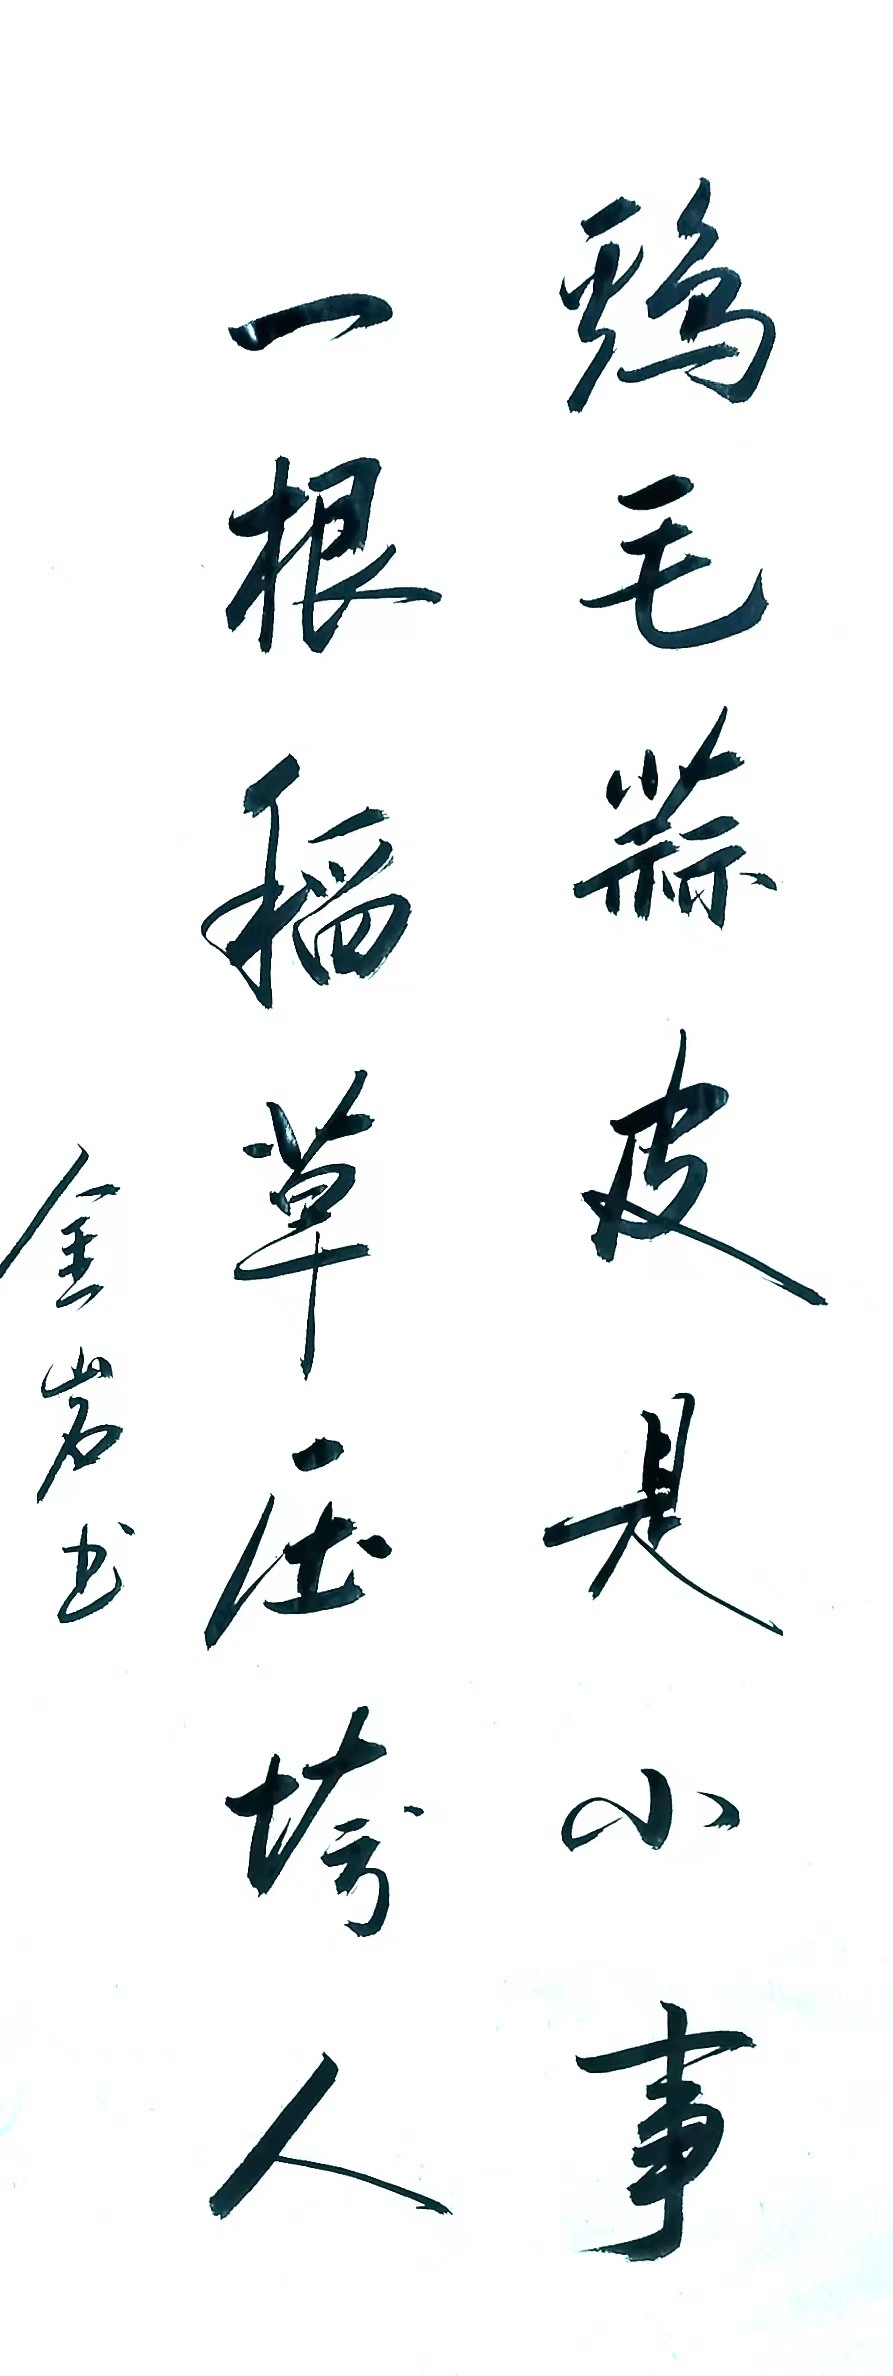 鸡毛蒜皮是小事
一根稻草压垮人
金岩书